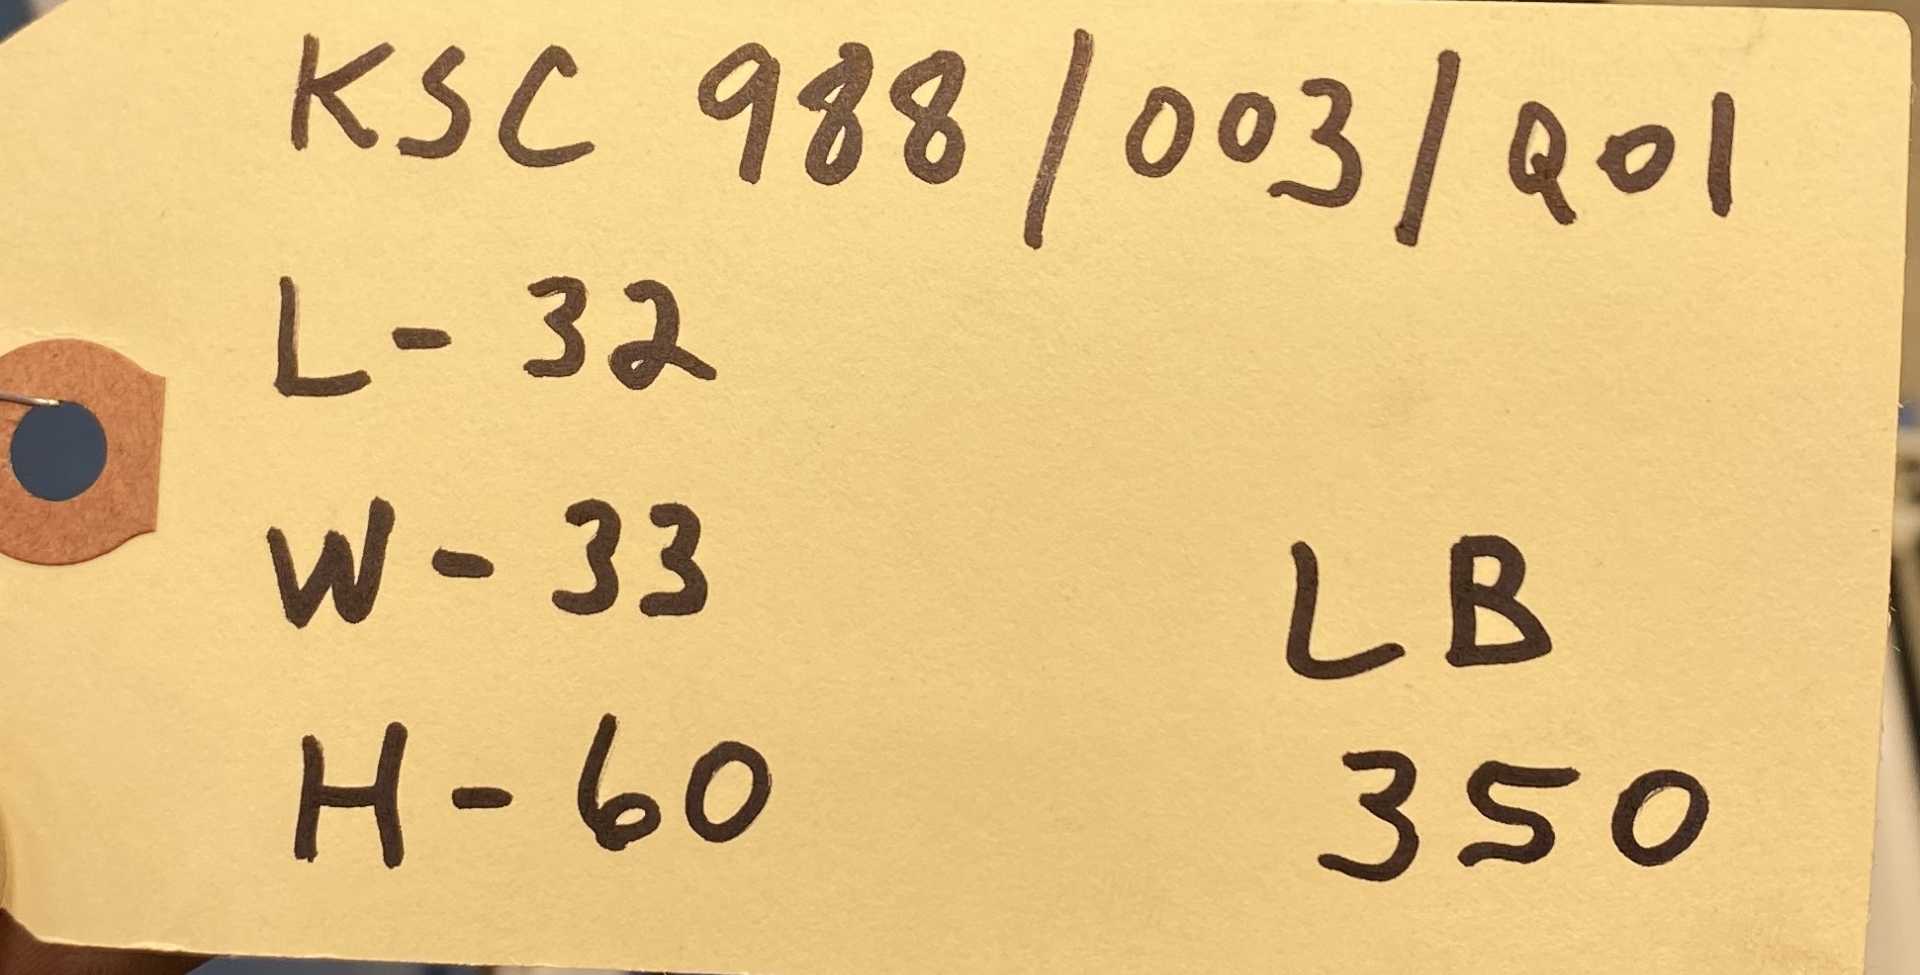 KSC 988/003/Q01
L-32
W-33
H-60
LB
350